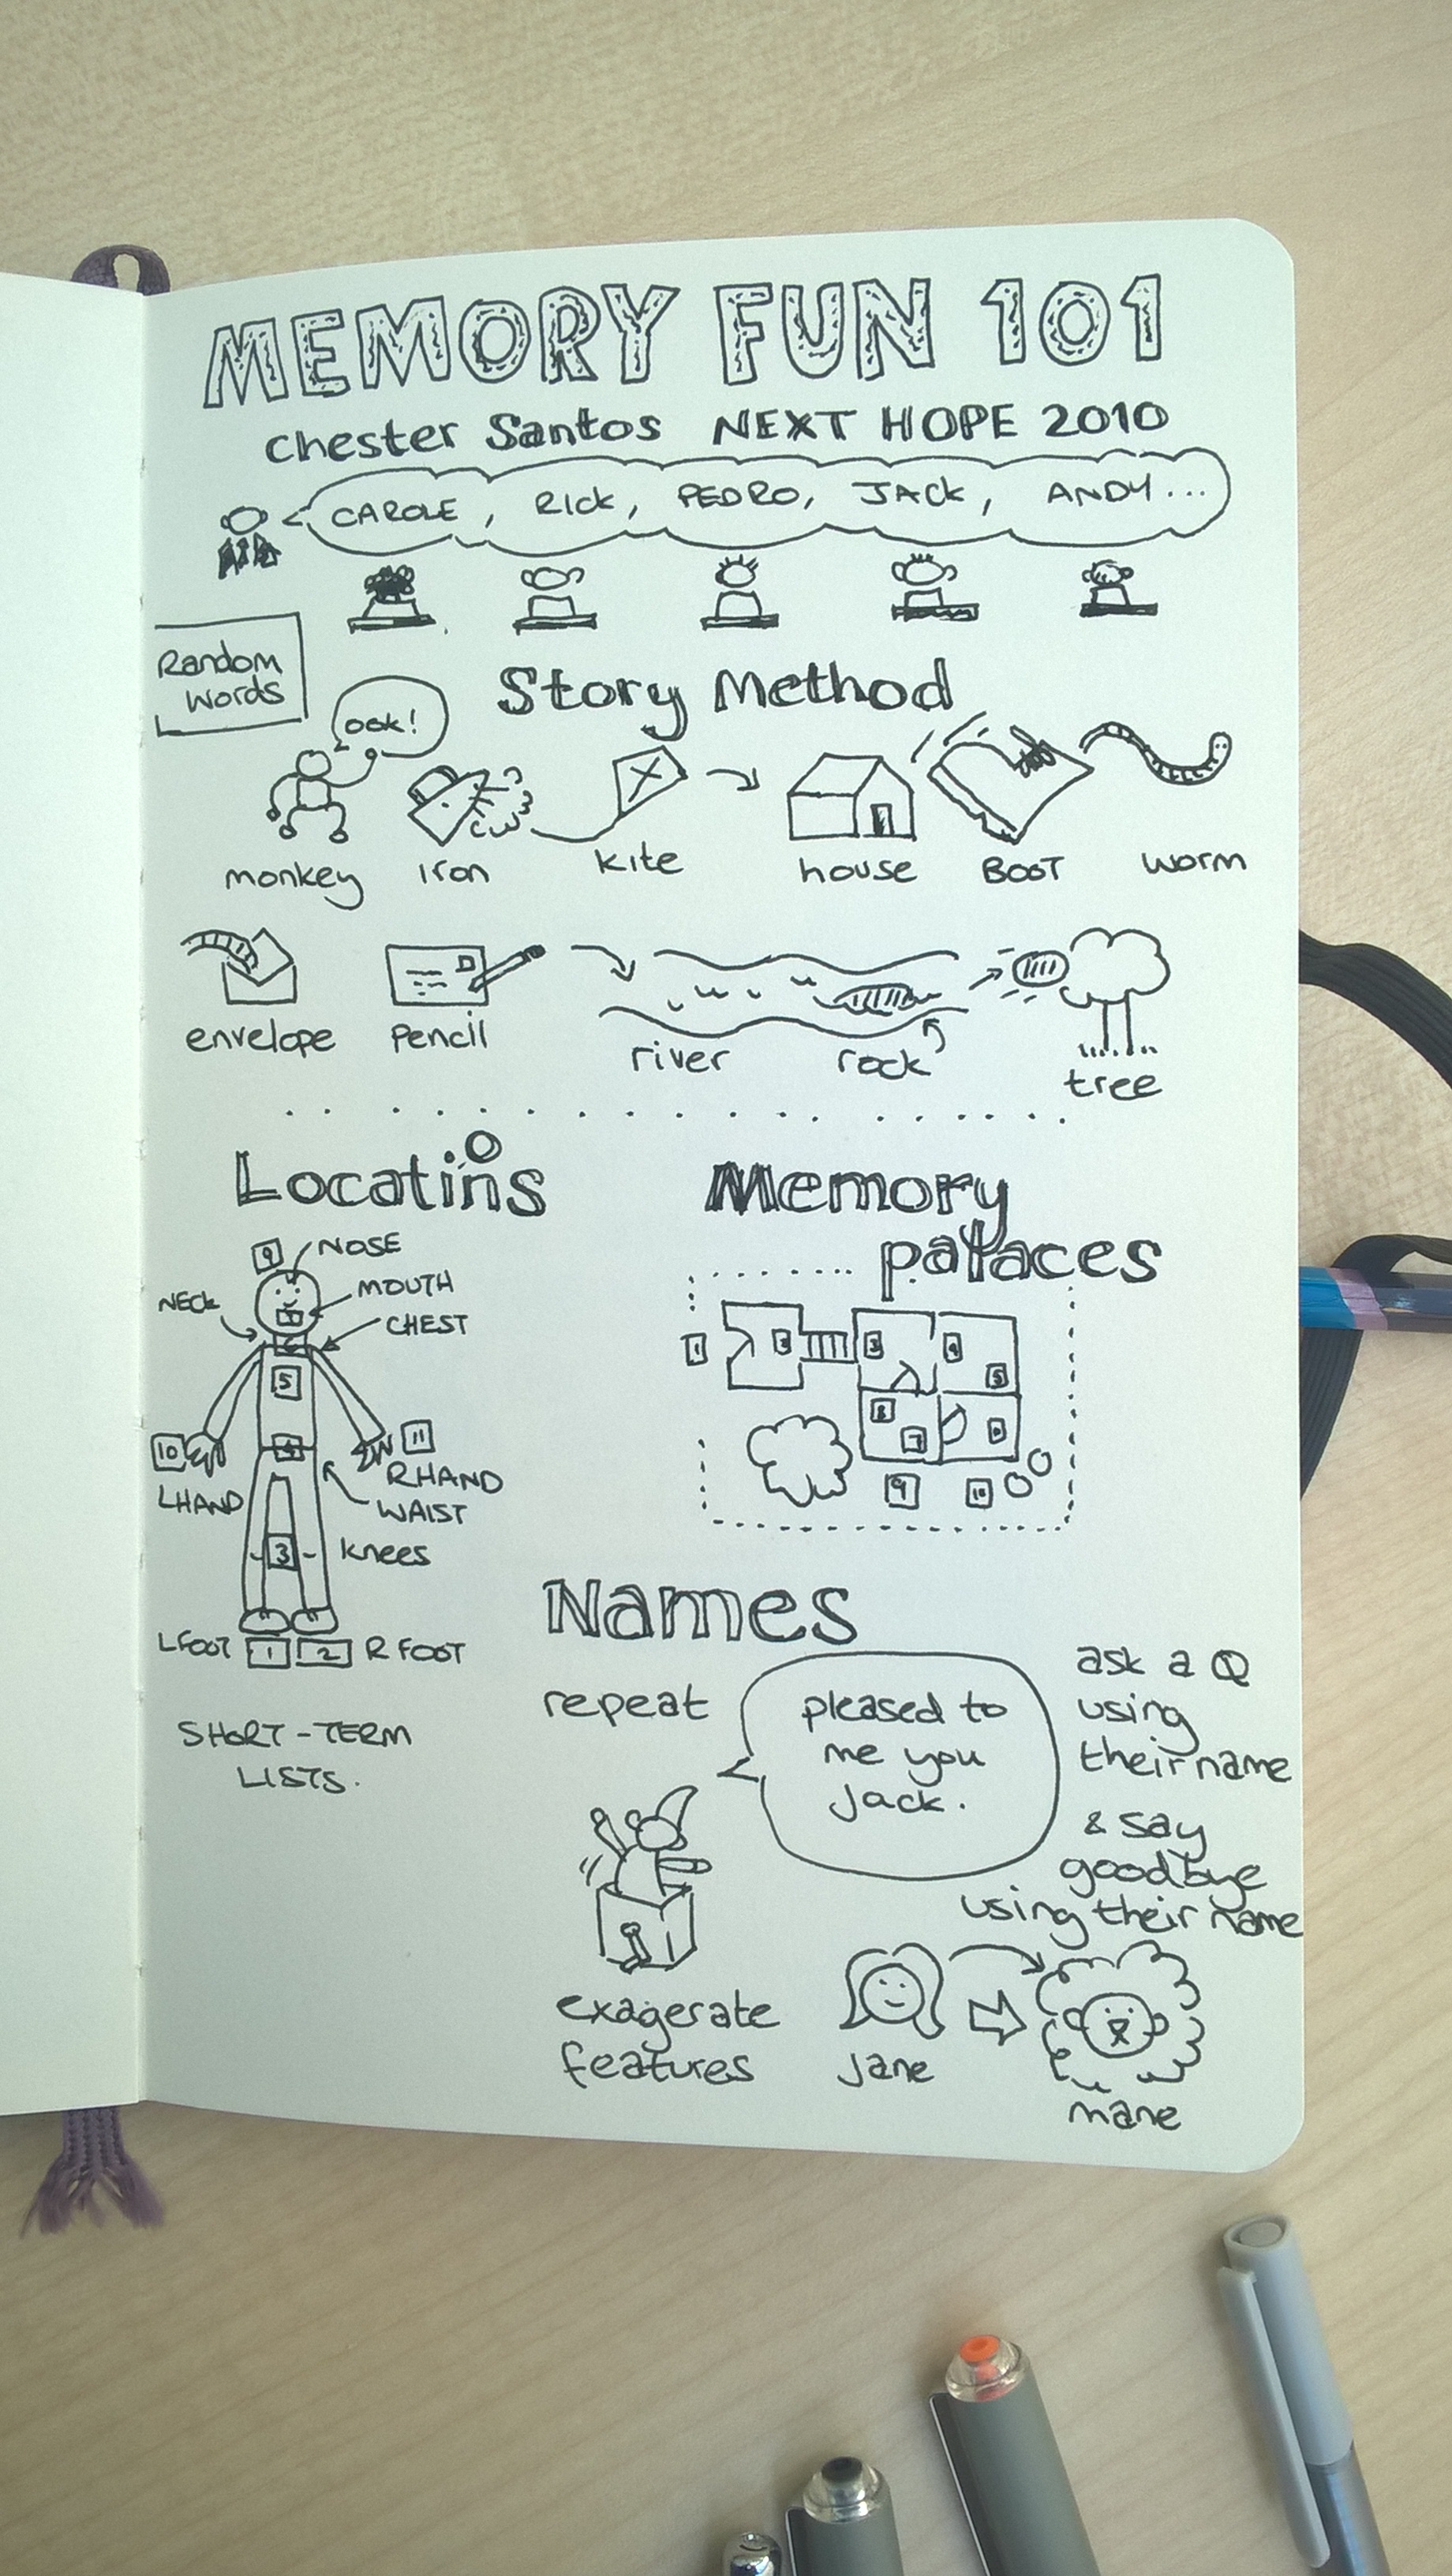 MEMORY FUN 101
Chester Santos NEXT HOPE 2010
CAROLE, RICK, PEDRO, JACK, ANDY...
Random
words
Story Method
ook!
monkey iron kite house BOOT worm
envelope pencil river rock tree
Locatins
o
Memory
palaces
9 NOSE
NECK MOUTH
CHEST
5
10 11
4
LHAND RHAND
WAIST
3 knees
LFOOT 1 2 R FOOT
SHORT-TERM
LISTS.
1 2 3 4
5
8 7 6
9 10
Names
repeat
pleased to
me you
Jack.
ask a Q
using
their name
& say
goodbye
using their name
exagerate
features
Jane
mane